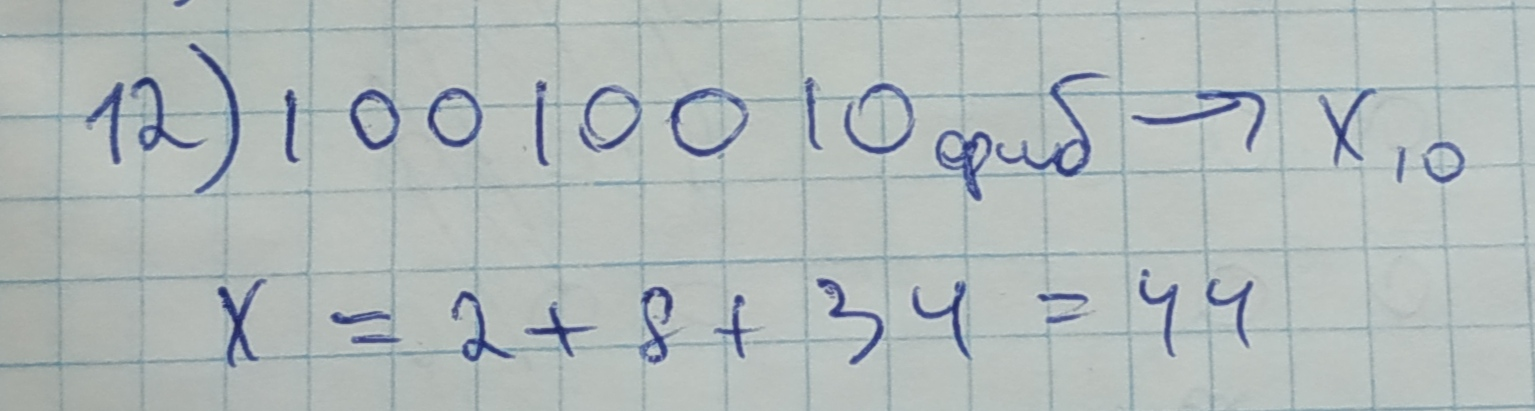 12) 10010010фиб → X10
X = 2 + 8 + 34 = 44